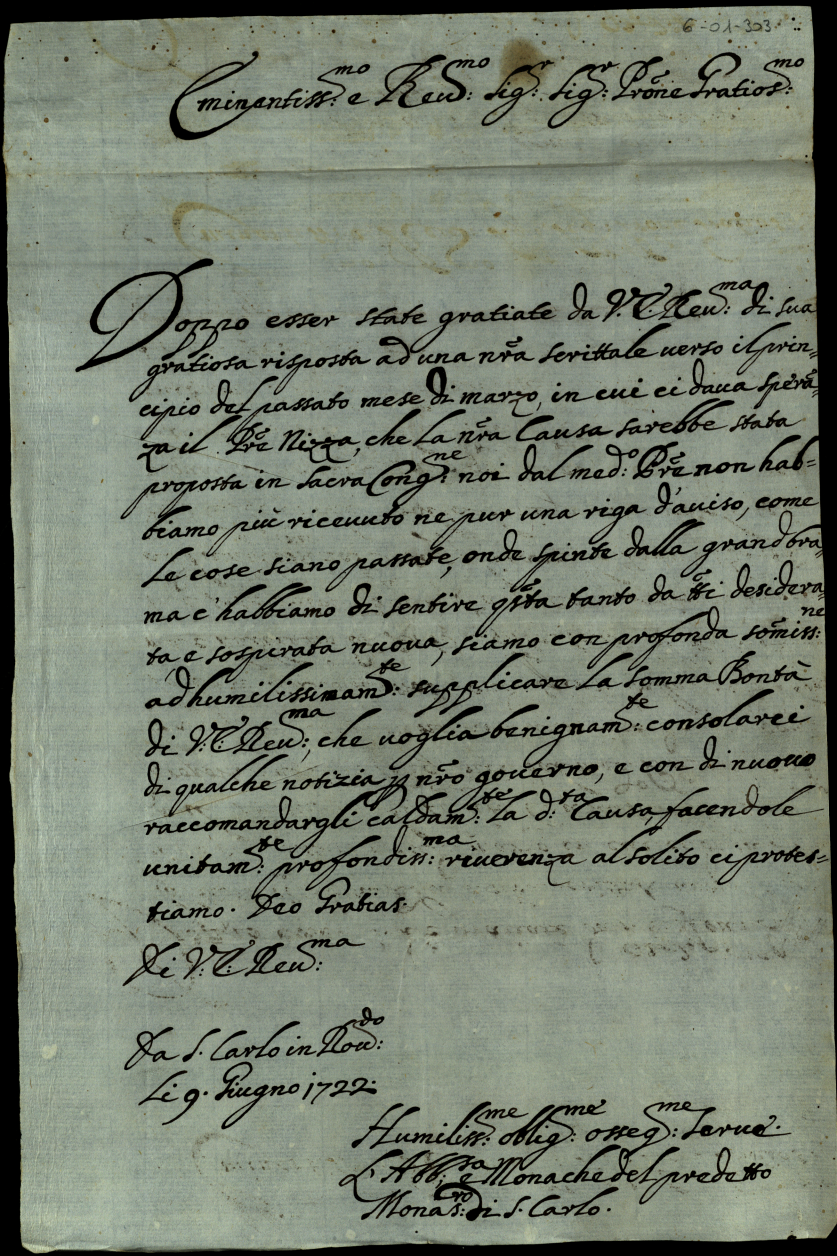 6-01-303
Eminentiss:mo e Reu:mo Sig:r Sig:r Prõne Gratios:mo
Doppo esser state gratiate da V: E: Reu:ma di sua
gratiosa risposta ad una nr̃a scrittale verso il prin=
cipio del passato mese di marzo, in cui ci daua sperã=
za il Prẽ Nizza, che la nr̃a Causa sarebbe stata
proposta in Sacra Cong:ne noi dal med:o Prẽ non hab=
biamo più riceuuto ne pur una riga d'auiso, come
le cose siano passate, onde spinte dalla grand bra=
ma c'habbiamo di sentire qs̃ta tanto da tt̃i desidera=
ta, e sospirata nuoua, siamo con profonda som̃iss:ne
ad humilissimam:te supplicare la somma Bontà
di V: E: Reu:ma, che uoglia benignam:te consolarci
di qualche notizia p nr̃o gouerno, e con di nuouo
raccomandargli caldam:te la d:ta Causa, facendole
unitam:te profondiss:ma riuerenza al solito ci protes=
tiamo. Deo Gratias.
Di V: E: Reu:ma
Da S. Carlo in Rou:do
Li 9. Giugno 1722.
Humiliss:me oblig:me osseq:me Serue.
L'Abb:sa e Monache del predetto
Monas:ro di S. Carlo.